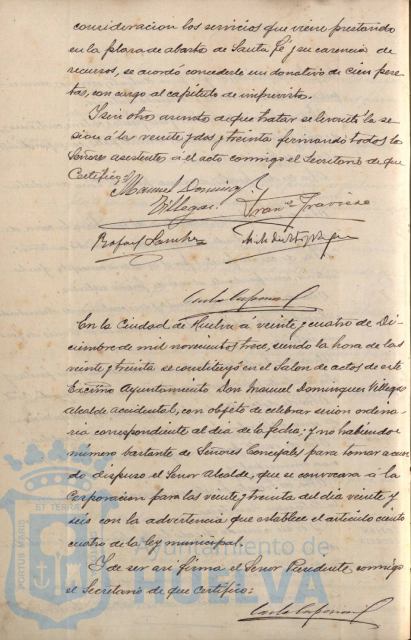 consideración los servicios que viene prestando
en la plaza de abasto de Santa Fé y su carencia de
recursos, se acordó concederle un donativo de cien pese-
tas, con cargo al capítulo de imprevisto.
Y sin otro asunto de que tratar se levantó la se-
sion á las veinte y dos y treinta firmando todos los
Señores asistentes á el acto conmigo el Secretario de que
Certifico
Manuel Domingz
Villegas
Franco Travieso
Rafael Sanchez
En la Ciudad de Huelva á veinte y cuatro de Di-
ciembre de mil novecientos trece, siendo la hora de las
veinte y treinta se constituyó en el Salon de actos de este
Excmo Ayuntamiento Don Manuel Dominguez Villegas
Alcalde accidental, con objeto de celebrar sesion ordena-
ria correspondiente al dia de la fecha; y no habiendo
número bastante de Señores Concejales para tomar acuer-
do dispuso el Señor Alcalde, que se convocara á la
Corporacion para las veinte y treinta del dia veinte y
seis con la advertencia que establece el articulo ciento
cuatro de la ley municipal.
Y de ser asi firma el Señor Presidente conmigo
el Secretario de que certifico:
PORTUS MARIS
ET TERRÆ
Ayuntamiento de
HUELVA